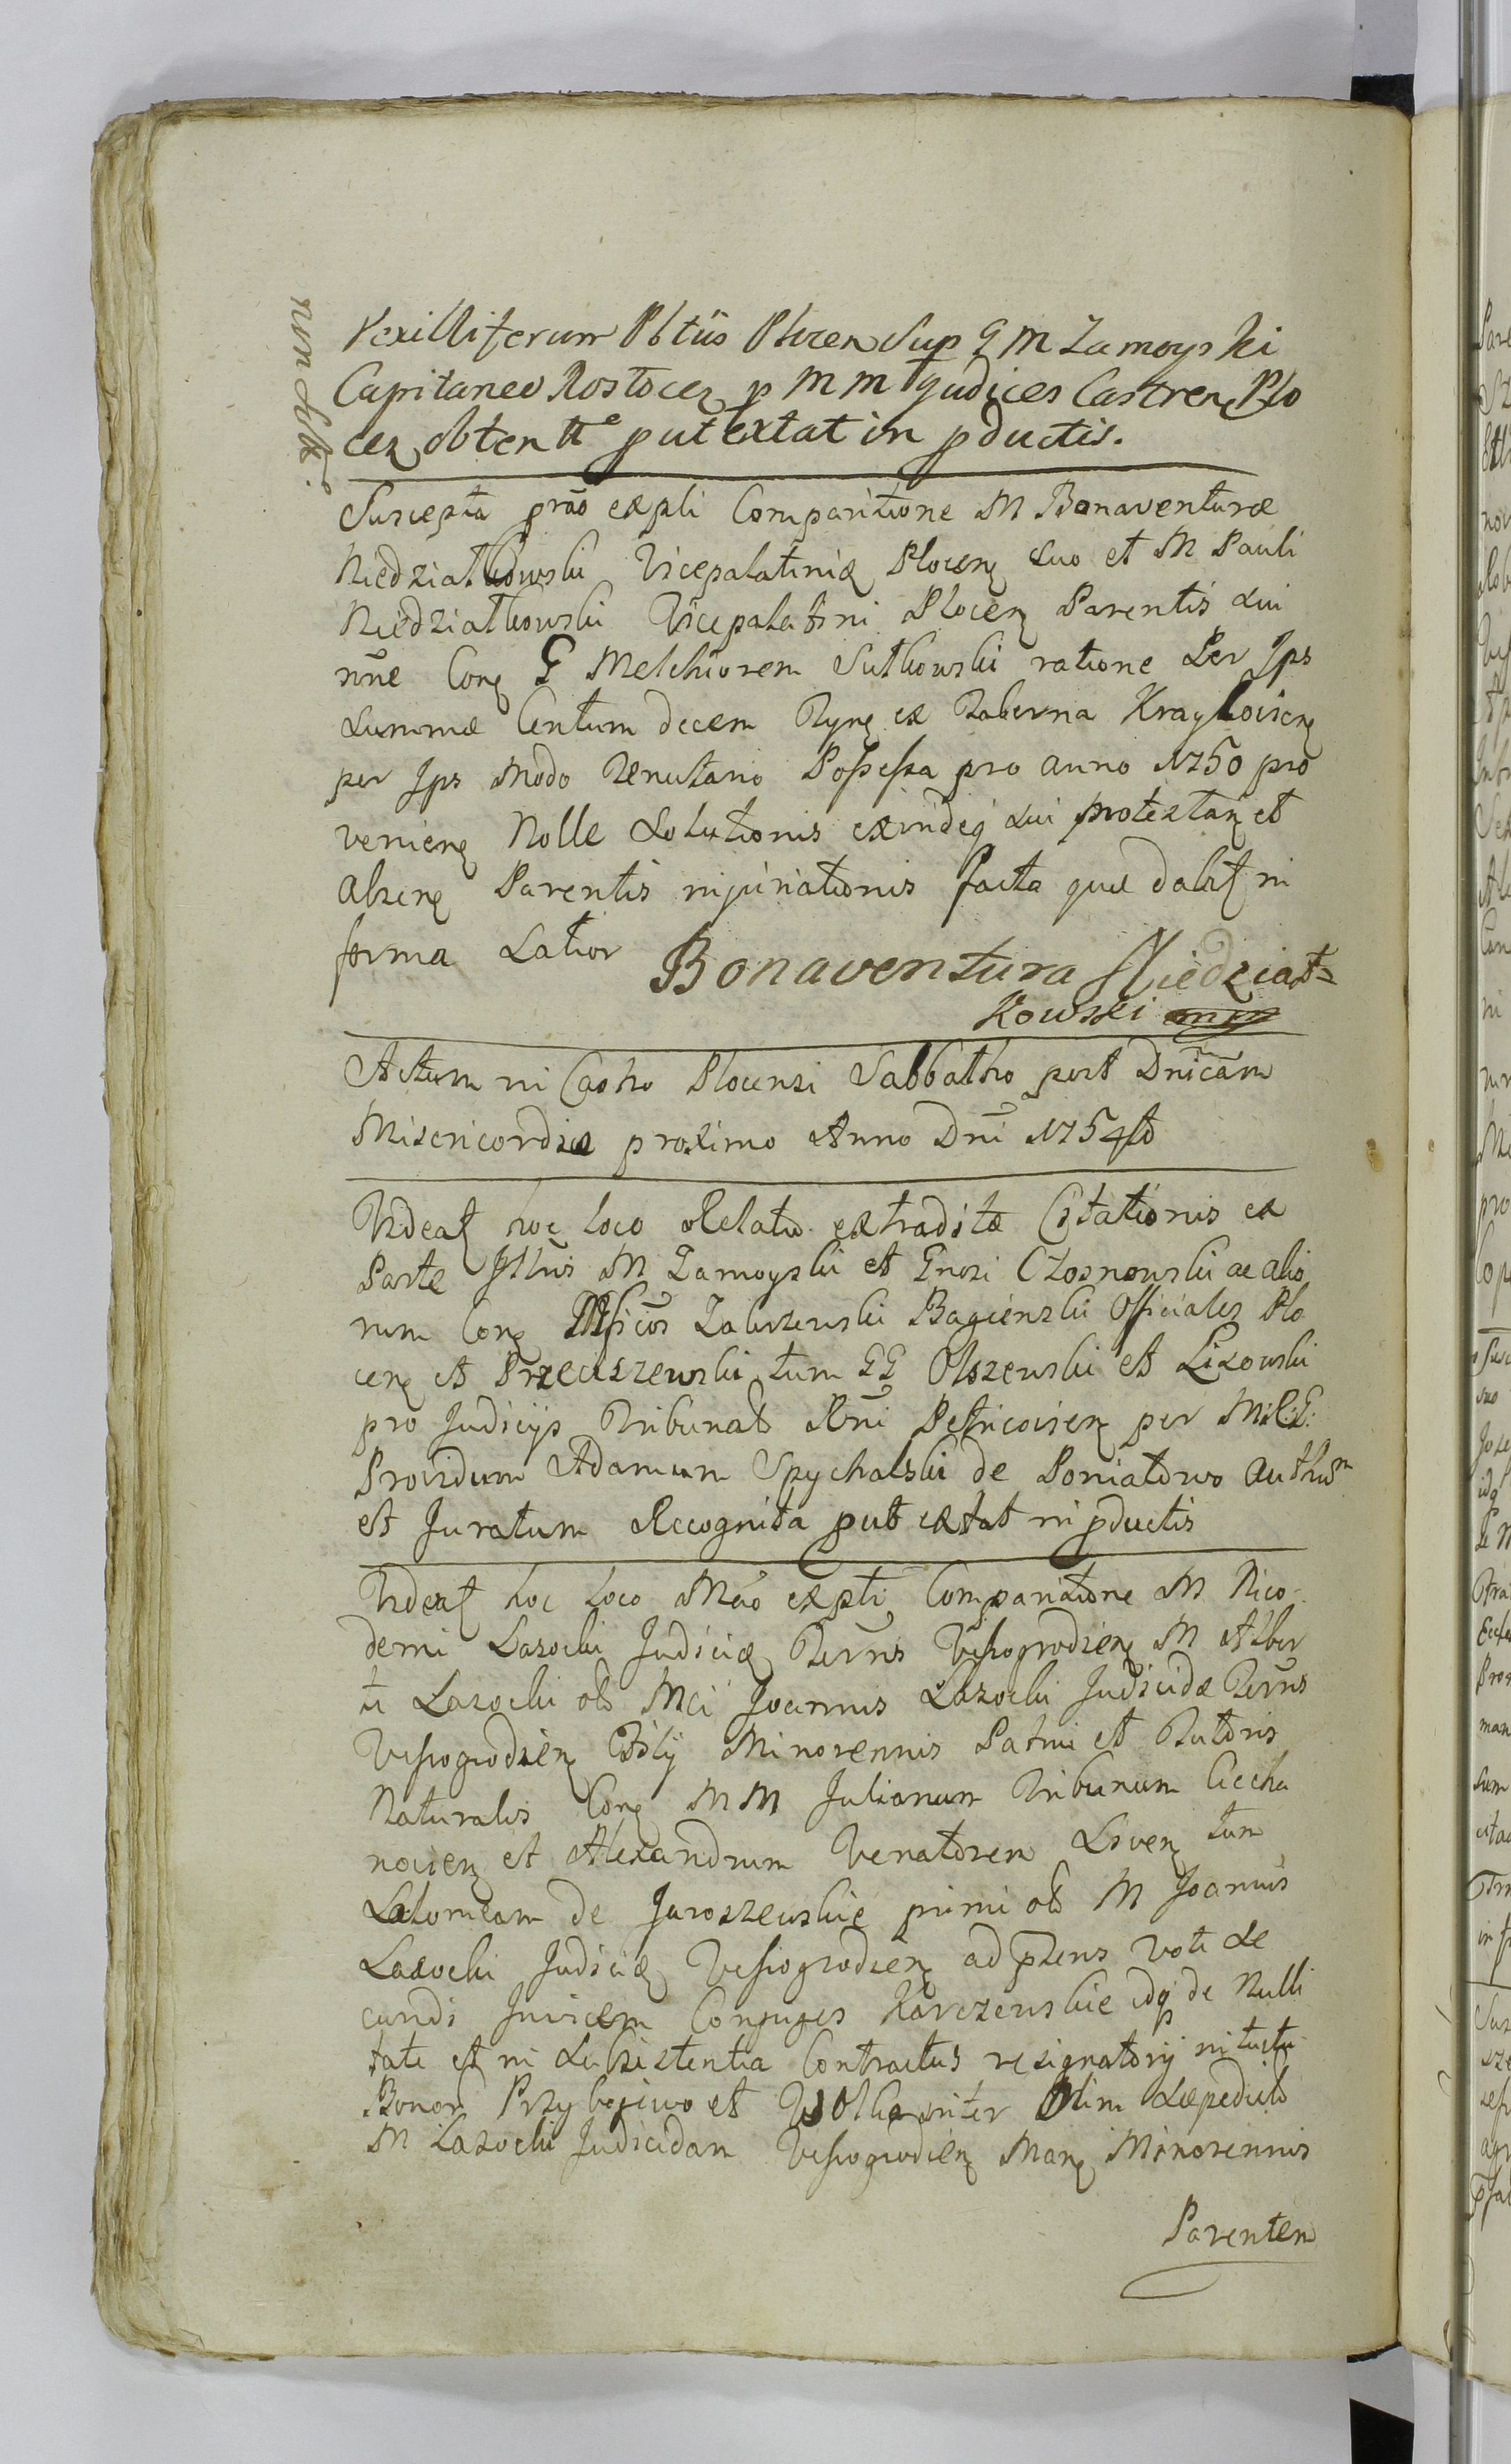 non Solt.
Vexilliferum Pbtus Plocen Sup G M Zamoyski
Capitaneo Rostocen p M M Judices Castren Plo
cen obtentte put extat in pductis.
Suscepta prao expli Comparitione M Bonaventuræ
Niedziałkowski Vicepalatinidæ Plocen Suo et M Pauli
Niedziałkowski Vicepalatini Plocen Parentis Sui
nne Con G Melchiorem Sutkowski ratione Per Ips
Summæ Centum decem Tyn ex Taberna
per Ips Modo Tenutario Possessa pro anno 1750 pro
venien Nolle Solutionis exindeq Sui protestan et
Absen Parentis injuriationis facta quæ dabit in
forma Latior Bonaventura Niedział=
kowski mp
Actum in Castro Plocensi Sabbatho post Dnicam
Misericordiæ proximo Anno Dni 1754to
Videat hoc loco Relatio extraditæ Citationis ex
Parte Illris M Zamoyski et Gnosi Czosnowski ac alio
rum Con Mficos Zaluzewski Bagienski Officiales Plo
cen et Przeciszewski tum GG Olszewski et Lisowski
pro Judicijs Tribunal Rni Petricovien per M:R:G:
Providum Adamum Spychalski de Poniatowo Authum
et Juratum Recognita put extat in pductis
Videat hoc loco Mtio expti Comparitione M Nico
demi Lasocki Judicidæ Terris Vissogrodien M Alber
ti Lasocki olo Mci Joannis Lasocki Judicidæ Terris
Vissogrodien Filij Minorennis Patrui et Tutoris
Naturalis Con M M Julianum Tribunum Ciecha
novien et Alexandrum Venatorem Liven tum
Salomeam de Jaroszewskie primi olo M Joannis
Lasocki Judicidæ Vissogrodien ad psens voti Se
cundi Invicem Conjuges Karczewskie idq de Nulli
tate et in Subsistentia Contractus resignatorij intuitu
Bonor Przybojewo et Wolka inter Olim
M Lasocki Judicidam Vissogrodien Man Minorennis
Parentem